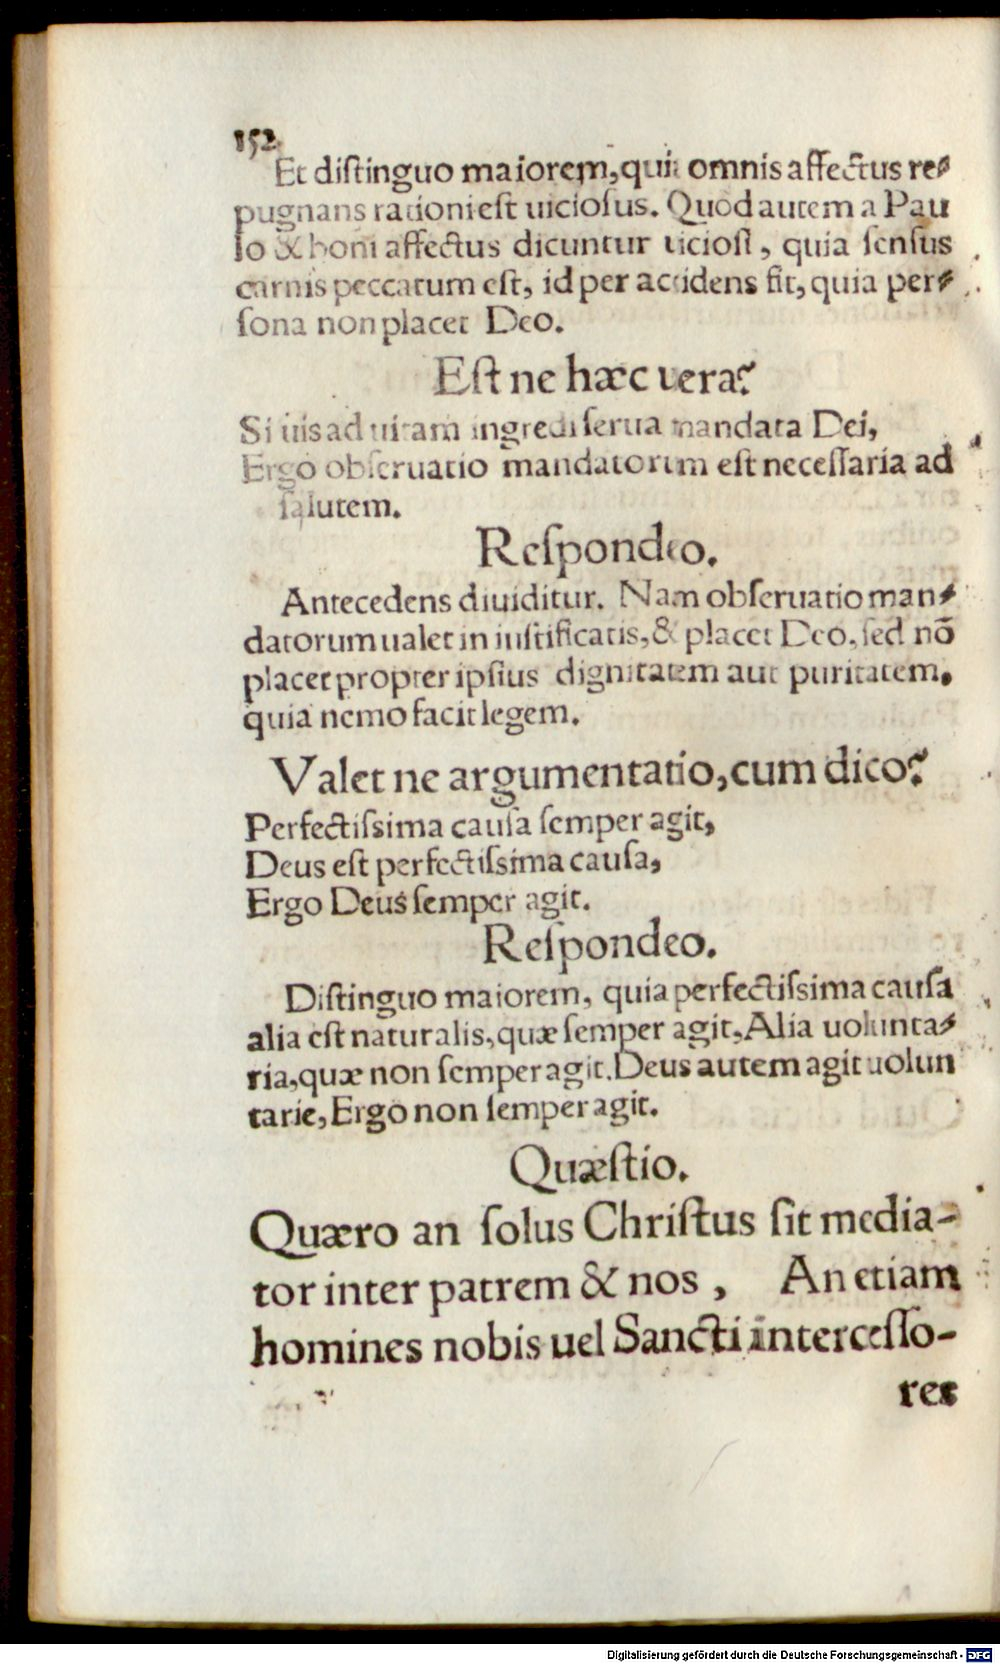 152
Et distinguo maiorem, quia omnis affectus re-
pugnans rationi est uiciosus. Quod autem a Pau
lo & boni affectus dicuntur uiciosi, quia sensus
carnis peccatum est, id per accidens fit, quia per-
sona non placet Deo.
Est ne hæc uera?
Si uis ad uitam ingredi serua mandata Dei,
Ergo obseruatio mandatorum est necessaria ad
salutem.
Respondeo.
Antecedens diuiditur. Nam obseruatio man-
datorum ualet in iustificatis, & placet Deo, sed nõ
placet propter ipsius dignitatem aut puritatem,
quia nemo facit legem.
Valet ne argumentatio, cum dico?
Perfectissima causa semper agit,
Deus est perfectissima causa,
Ergo Deus semper agit.
Respondeo.
Distinguo maiorem, quia perfectissima causa
alia est naturalis, quæ semper agit, Alia uolunta-
ria, quæ non semper agit. Deus autem agit uolun
tarie, Ergo non semper agit.
Quæstio.
Quæro an solus Christus sit media-
tor inter patrem & nos, An etiam
homines nobis uel Sancti intercesso-
res
Digitalisierung gefördert durch die Deutsche Forschungsgemeinschaft - DFG